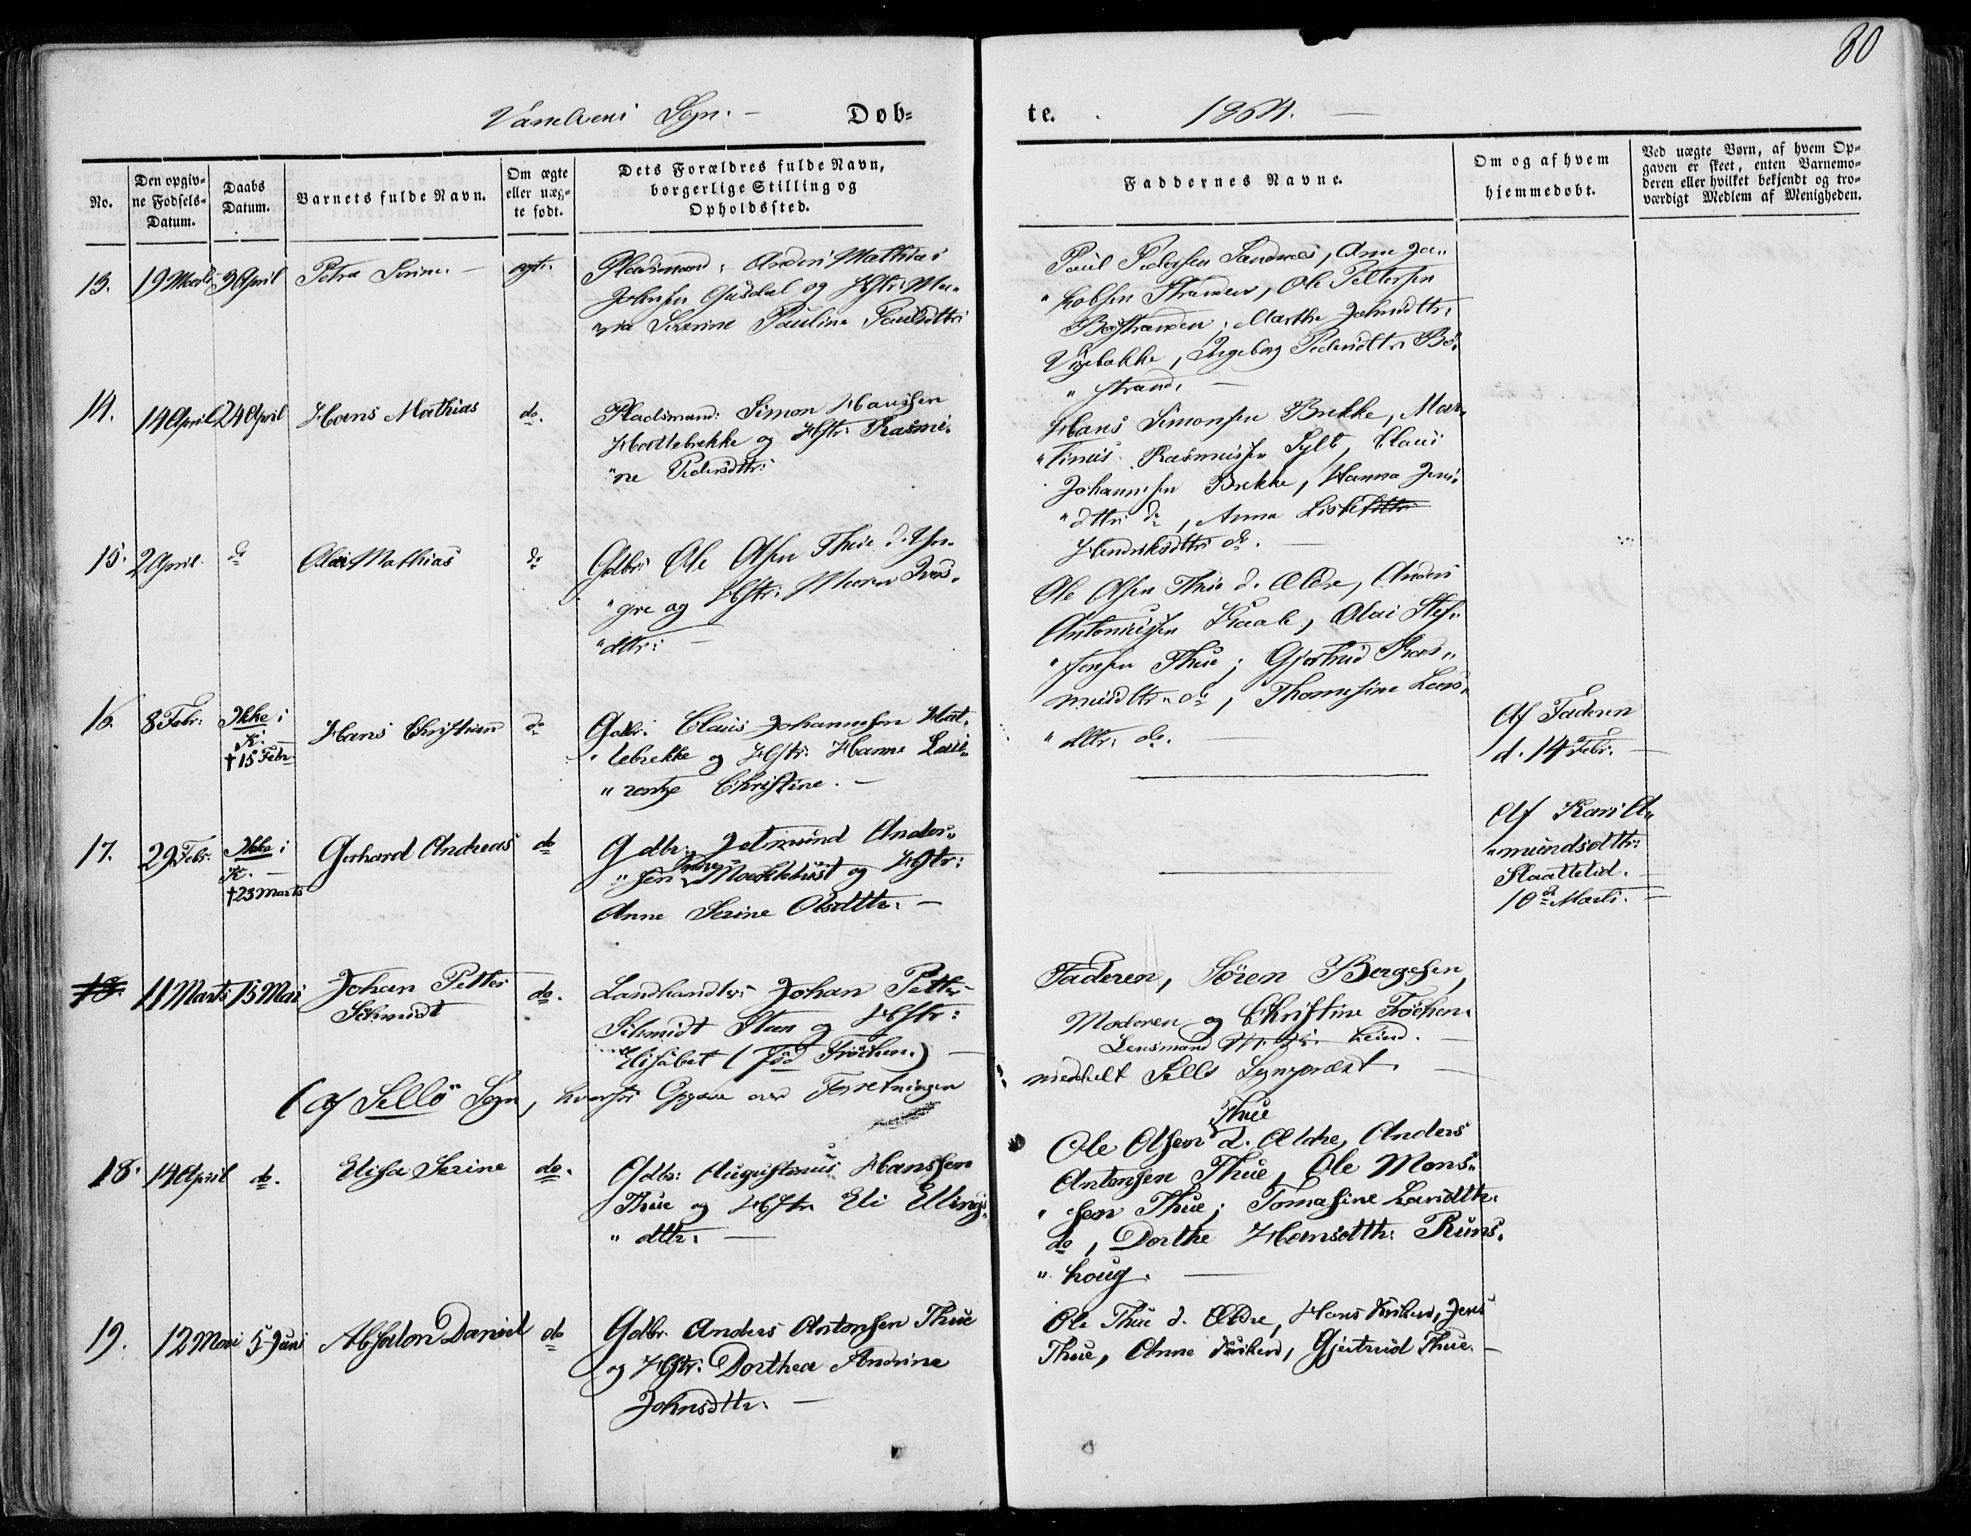 80
Vanelvens Sogn. — Døb-
te. 1864. —
No.
Den opgiv-
ne Fødsels-
Datum.
Daabs
Datum.
Barnets fulde Navn.
Om ægte
eller uæg-
te født.
Dets Forældres fulde Navn,
borgerlige Stilling og
Opholdssted.
Faddernes Navne.
Om og af hvem
hjemmedøbt.
Ved uægte Børn, af hvem Op-
gaven er skeet, enten Barnemo-
deren eller hvilket bekjendt og tro-
værdigt Medlem af Menigheden.
13. 19 Marts 3 April Petra Serine. — ægte.
Pladsmand: Anders Mathias
Johnsen Gusdal og Hstr: Ma-
"ria Severine Pauline Paulsdttr:
Paul Pedersen Sandnes, Anne Ja-
"kobsen Stranden, Ole Pettersen
Bøstranden; Marthe Johnsdttr.
Vigebakke, Ingeborg Pedersdttr: Bø-
"strand. —
14. 14 April 24 April Hans Mathias do.
Pladsmand: Simon Hanssen
Hatlebrekke og Hstr: Rasmi-
"ne Pedersdttr:
Hans Simonsen Brekke, Mar-
"tinus Rasmussen Sylte, Claus
Johannesen Brekke, Hanna Jens-
"dttr do, Anna
Hendriksdttr do. —
15. 2 April. do Olai Mathias do
Gdbr: Ole Olsen Thue d. Yn-
"gre og Hstr: Maren Ivers-
"dttr: —
Ole Olsen Thue d. Ældre, Anders
Antoniussen Kaale, Olai Stef-
"fensen Thue; Gjertrud Ras-
musdttr. do, Thomesine Lars-
"dttr: do. —
16. 8 Febr: Ikke i Hans Christian do
K: —
† 15 Febr.
Gdbr. Claus Johannesen Hat-
"lebrekke og Hstr: Hanne Lau-
"rentze Christine. —
Af Faderen
d. 14 Febr. —
17. 29 Febr: Ikke i Gerhard Andreas do
K. —
† 23 Marts
Gdbr: Jetmund Ander-
"sen Indre- Mæklebust og Hstr:
Anne Serine Olsdttr. —
Af Kari A-
"mundsdttr:
Slaattelid. —
10de Marts. —
18. 11 Marts 15 Mai Johan Petter do.
Schmidt
Landhandler Johan Petter
Schmidt Stan og Hstr:
Elisabet (fød Frøchen.) —
Faderen, Søren Bergesen,
Moderen og Christine Frøchen.
Lensmand Leind. —
(af Sellø Sogn, hvorfra Opgave over Forretningen
meddelt Sellø Sognepræst.
18. 14 April do. Elisa Serine do.
Gdbr: Augustinus Hanssen
Thue og Hstr. Eli Ellings-
"dttr: —
Thue
Ole Olsen d. Ældre, Anders
Antonsen Thue, Ole Mons-
"sen Thue; Tomasine Larsdttr.
do, Dorthe Hansdttr: Runs-
"houg. —
19. 12 Mai 5 Juni Absalon Daniel do
Gdbr. Anders Antonsen Thue
og Hstr: Dorthea Andrine
Johnsdttr. —
Ole Thue d. Ældre, Hans Furken, Jens
Thue, Anne Furken, Gjertrud Thue. —